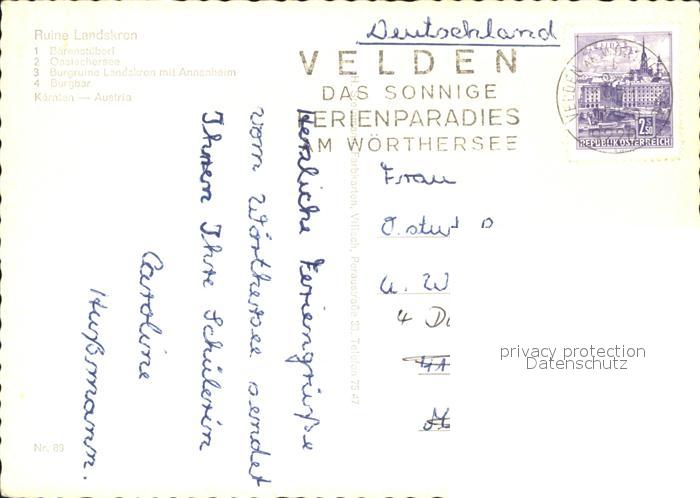 Ruine Landskron
1 Bärenstüberl
2 Ossiachersee
3 Burgruine Landskron mit Annenheim
4 Burgbar
Kärnten — Austria
Deutschland
VELDEN
DAS SONNIGE
FERIENPARADIES
AM WÖRTHERSEE
2.50
REPUBLIK ÖSTERREICH
Herzliche Feriengrüße
vom Wörthersee sendet
Ihnen Ihre Schülerin
Caroline
Hußmann.
Farbkarten, Villach, Peraustraße 23, Telefon 75 47
Frau
4 D
privacy protection
Datenschutz
Nr. 89